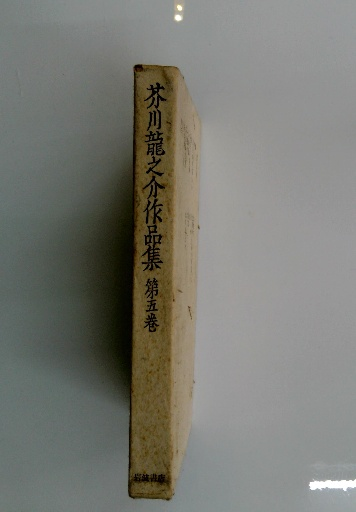 芥川龍之介作品集 第五巻
岩波書店